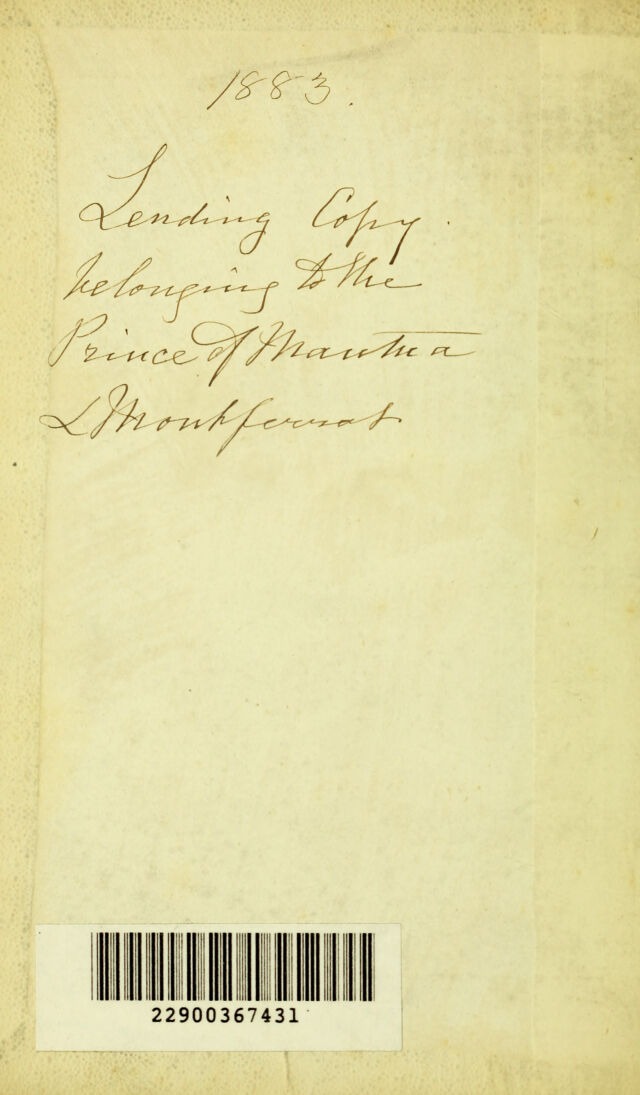 1883.
Lending Copy.
belonging to the
Prince of Mantua
& Montferrat
22900367431